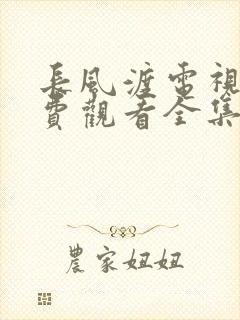 長風渡電視
費觀看全集
農家妞妞